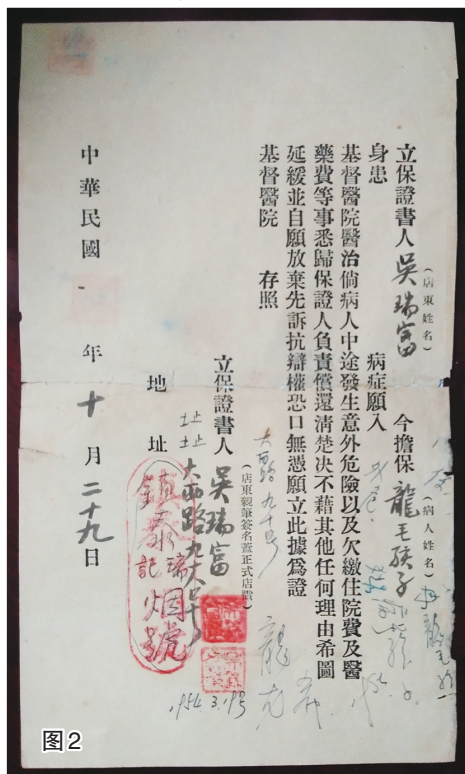 立保證書人吳瑞富今擔保龍毛孩子
（店東姓名）
（病人姓名）
身患 病症願入
基督醫院醫治倘病人中途發生意外危險以及欠繳住院費及醫
藥費等事悉歸保證人負責償還清楚决不藉其他任何理由希圖
延緩並自願放棄先訴抗辯權恐口無憑願立此據爲證
基督醫院 存照
立保證書人 吳瑞富
（店東親筆簽名蓋正式店章）
地址 大西路九十号
大西路九十号
鎮泰瑞記烟號
1954.3.19
中華民國 年十月二十九日
图2